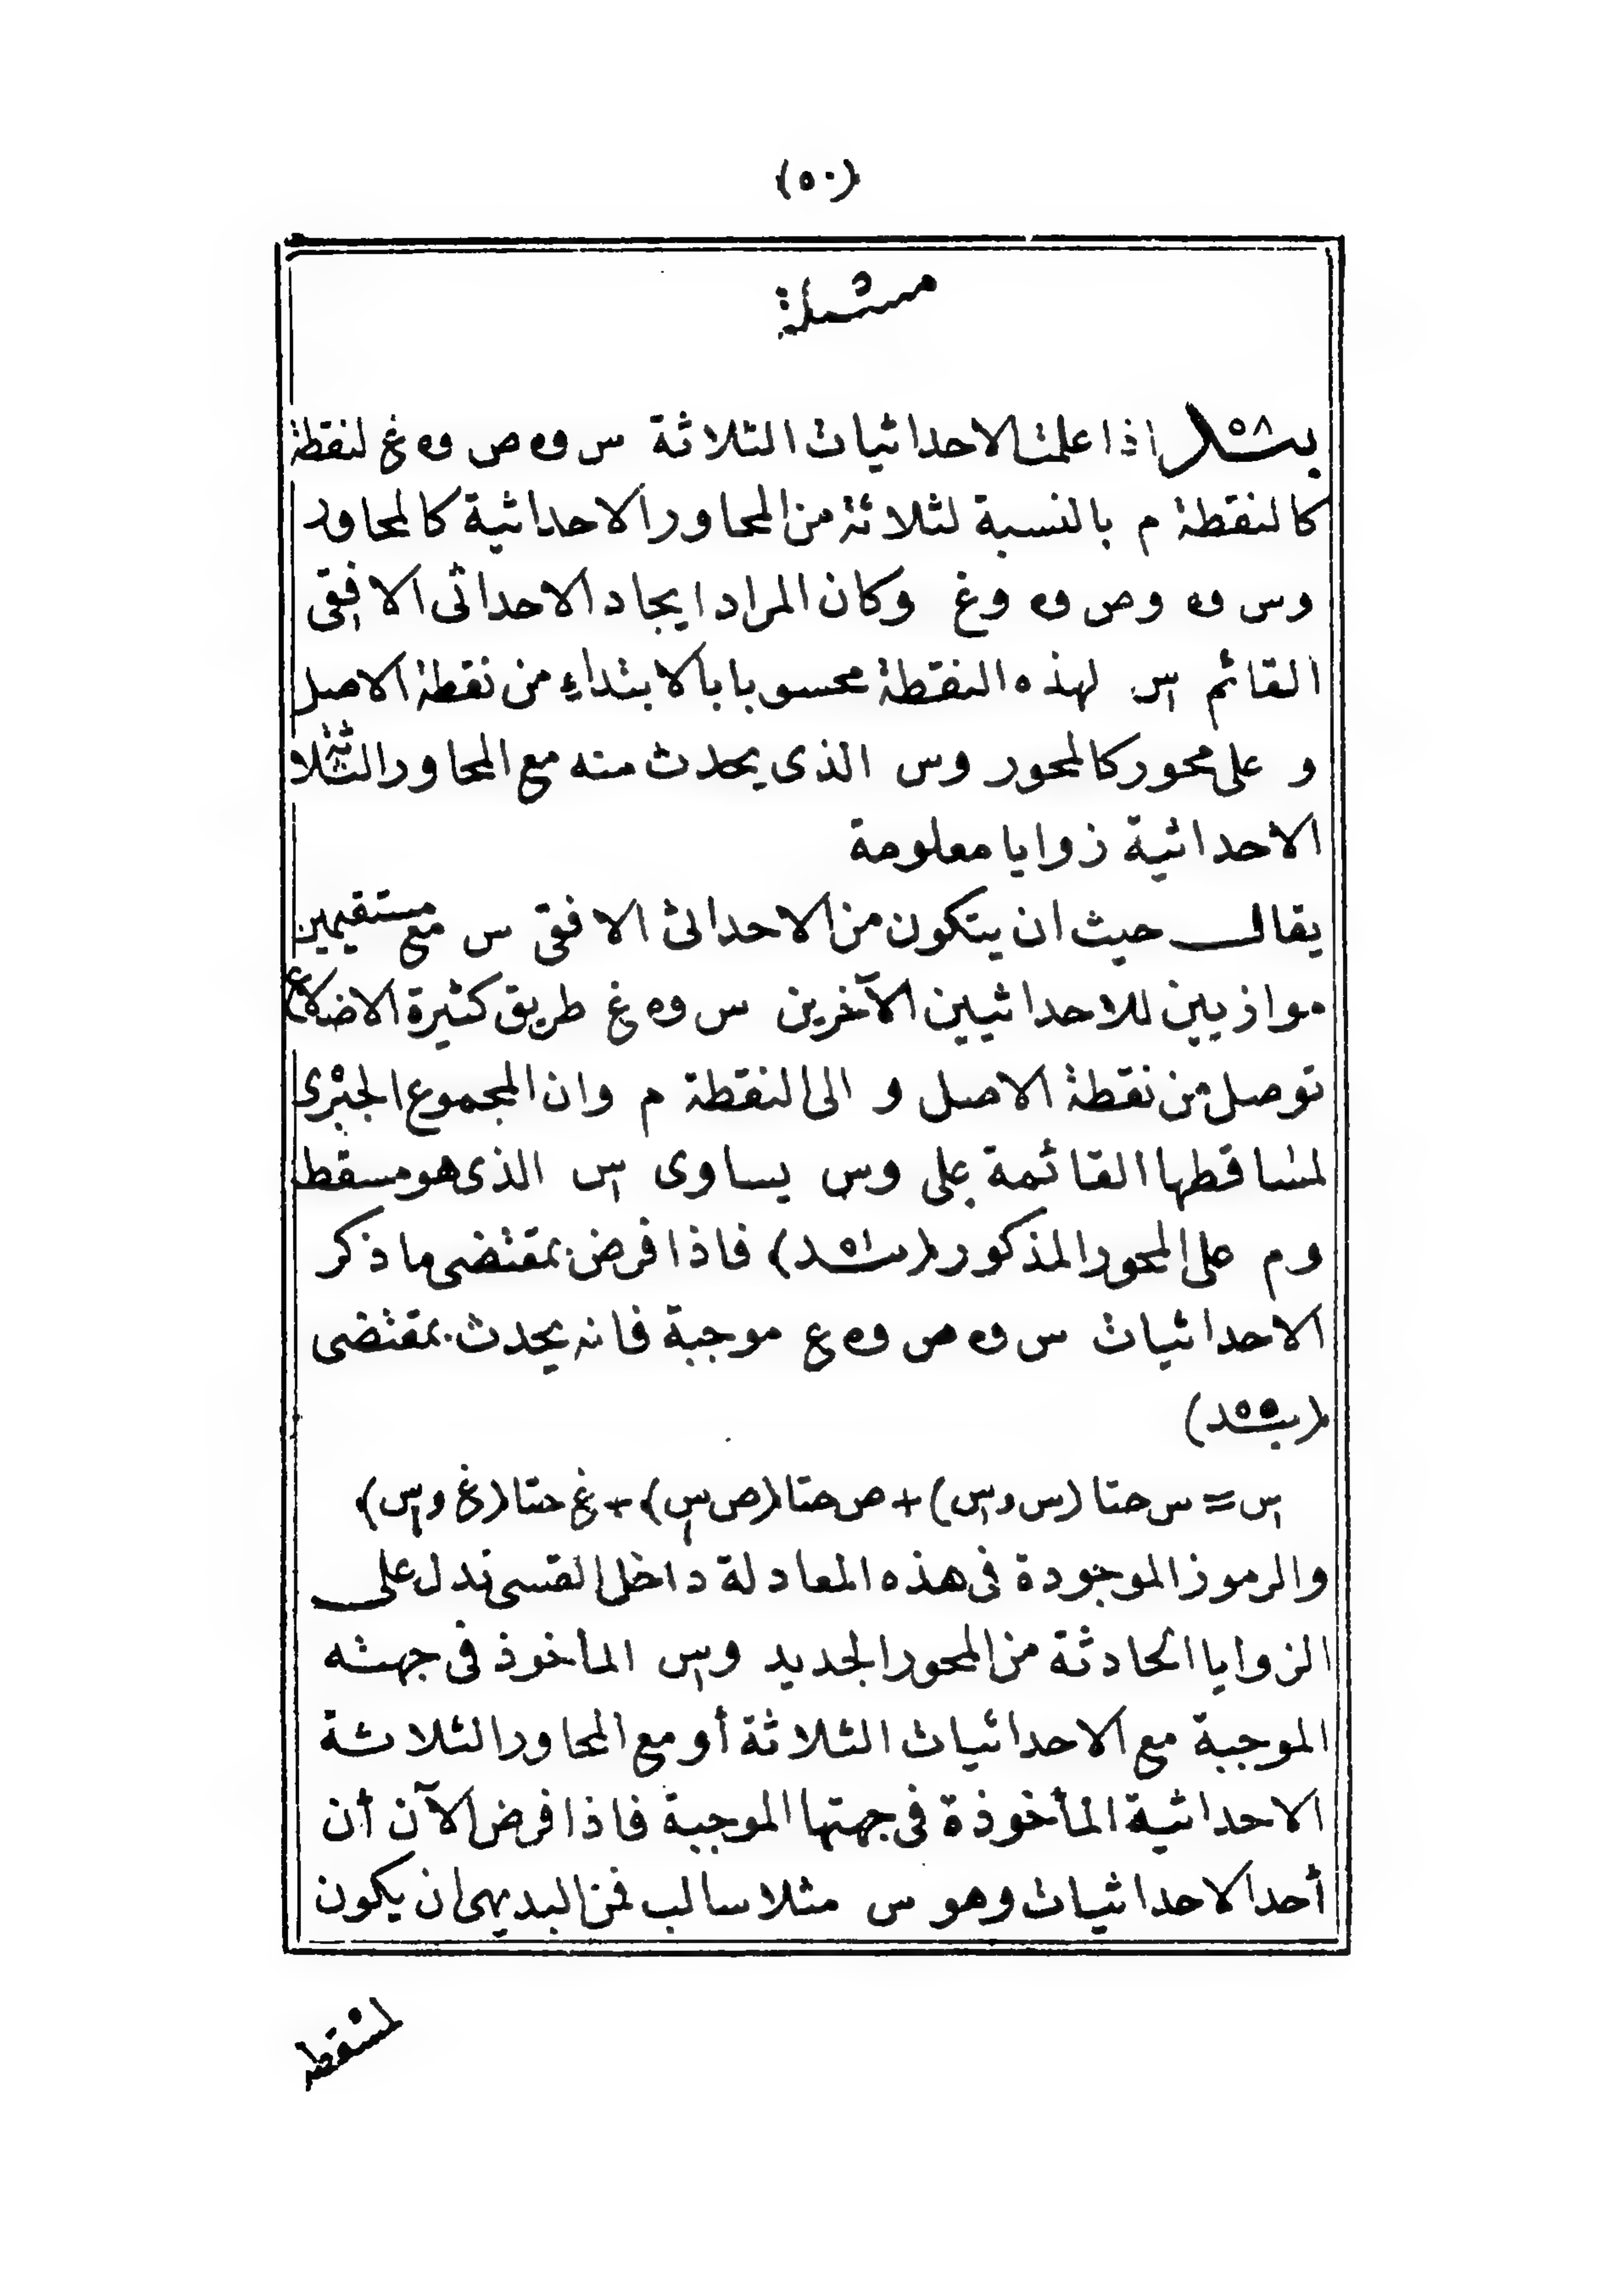 (٥٠)
مسئلة
بند ٥٨ اذا علمت الاحداثيات الثلاثة س و ه ص و ه غ لنقطة
كالنقطة م بالنسبة لثلاثة من المحاور الاحداثية كالمحاور
وس و ه وص و ه وغ وكان المراد ايجاد الاحداثى الافقى
القائم س لهذه النقطة محسوبا بالابتداء من نقطة الاصل
و على محور كالمحور وس الذى يحدث منه مع المحاور الثلاثة
الاحداثية زوايا معلومة
يقال حيث ان يتكون من الاحداثى الافقى س مع مستقيمين
موازيين للاحداثيين الآخرين س و ه غ طريق كثيرة الاضلاع
توصل من نقطة الاصل و الى النقطة م وان المجموع الجبرى
لمساقطها القائمة على وس يساوى س الذى هو مسقط
وم على المحور المذكور (بند ٥١) فاذا فرض بمقتضى ما ذكر
الاحداثيات س و ه ص و ه ع موجبة فانه يحدث بمقتضى
(بند ٥٥)
س = س حتا (س و س) + ص حتا (ص س) + غ حتا (غ و س)
والرموز الموجودة فى هذه المعادلة داخل القسى تدل على
الزوايا الحادثة من المحور الجديد وس المأخوذ فى جهته
الموجبة مع الاحداثيات الثلاثة أو مع المحاور الثلاثة
الاحداثية المأخوذة فى جهتها الموجبة فاذا فرض الآن أن
أحد الاحداثيات وهو س مثلا سالب فمن البديهى ان يكون
لمسقط